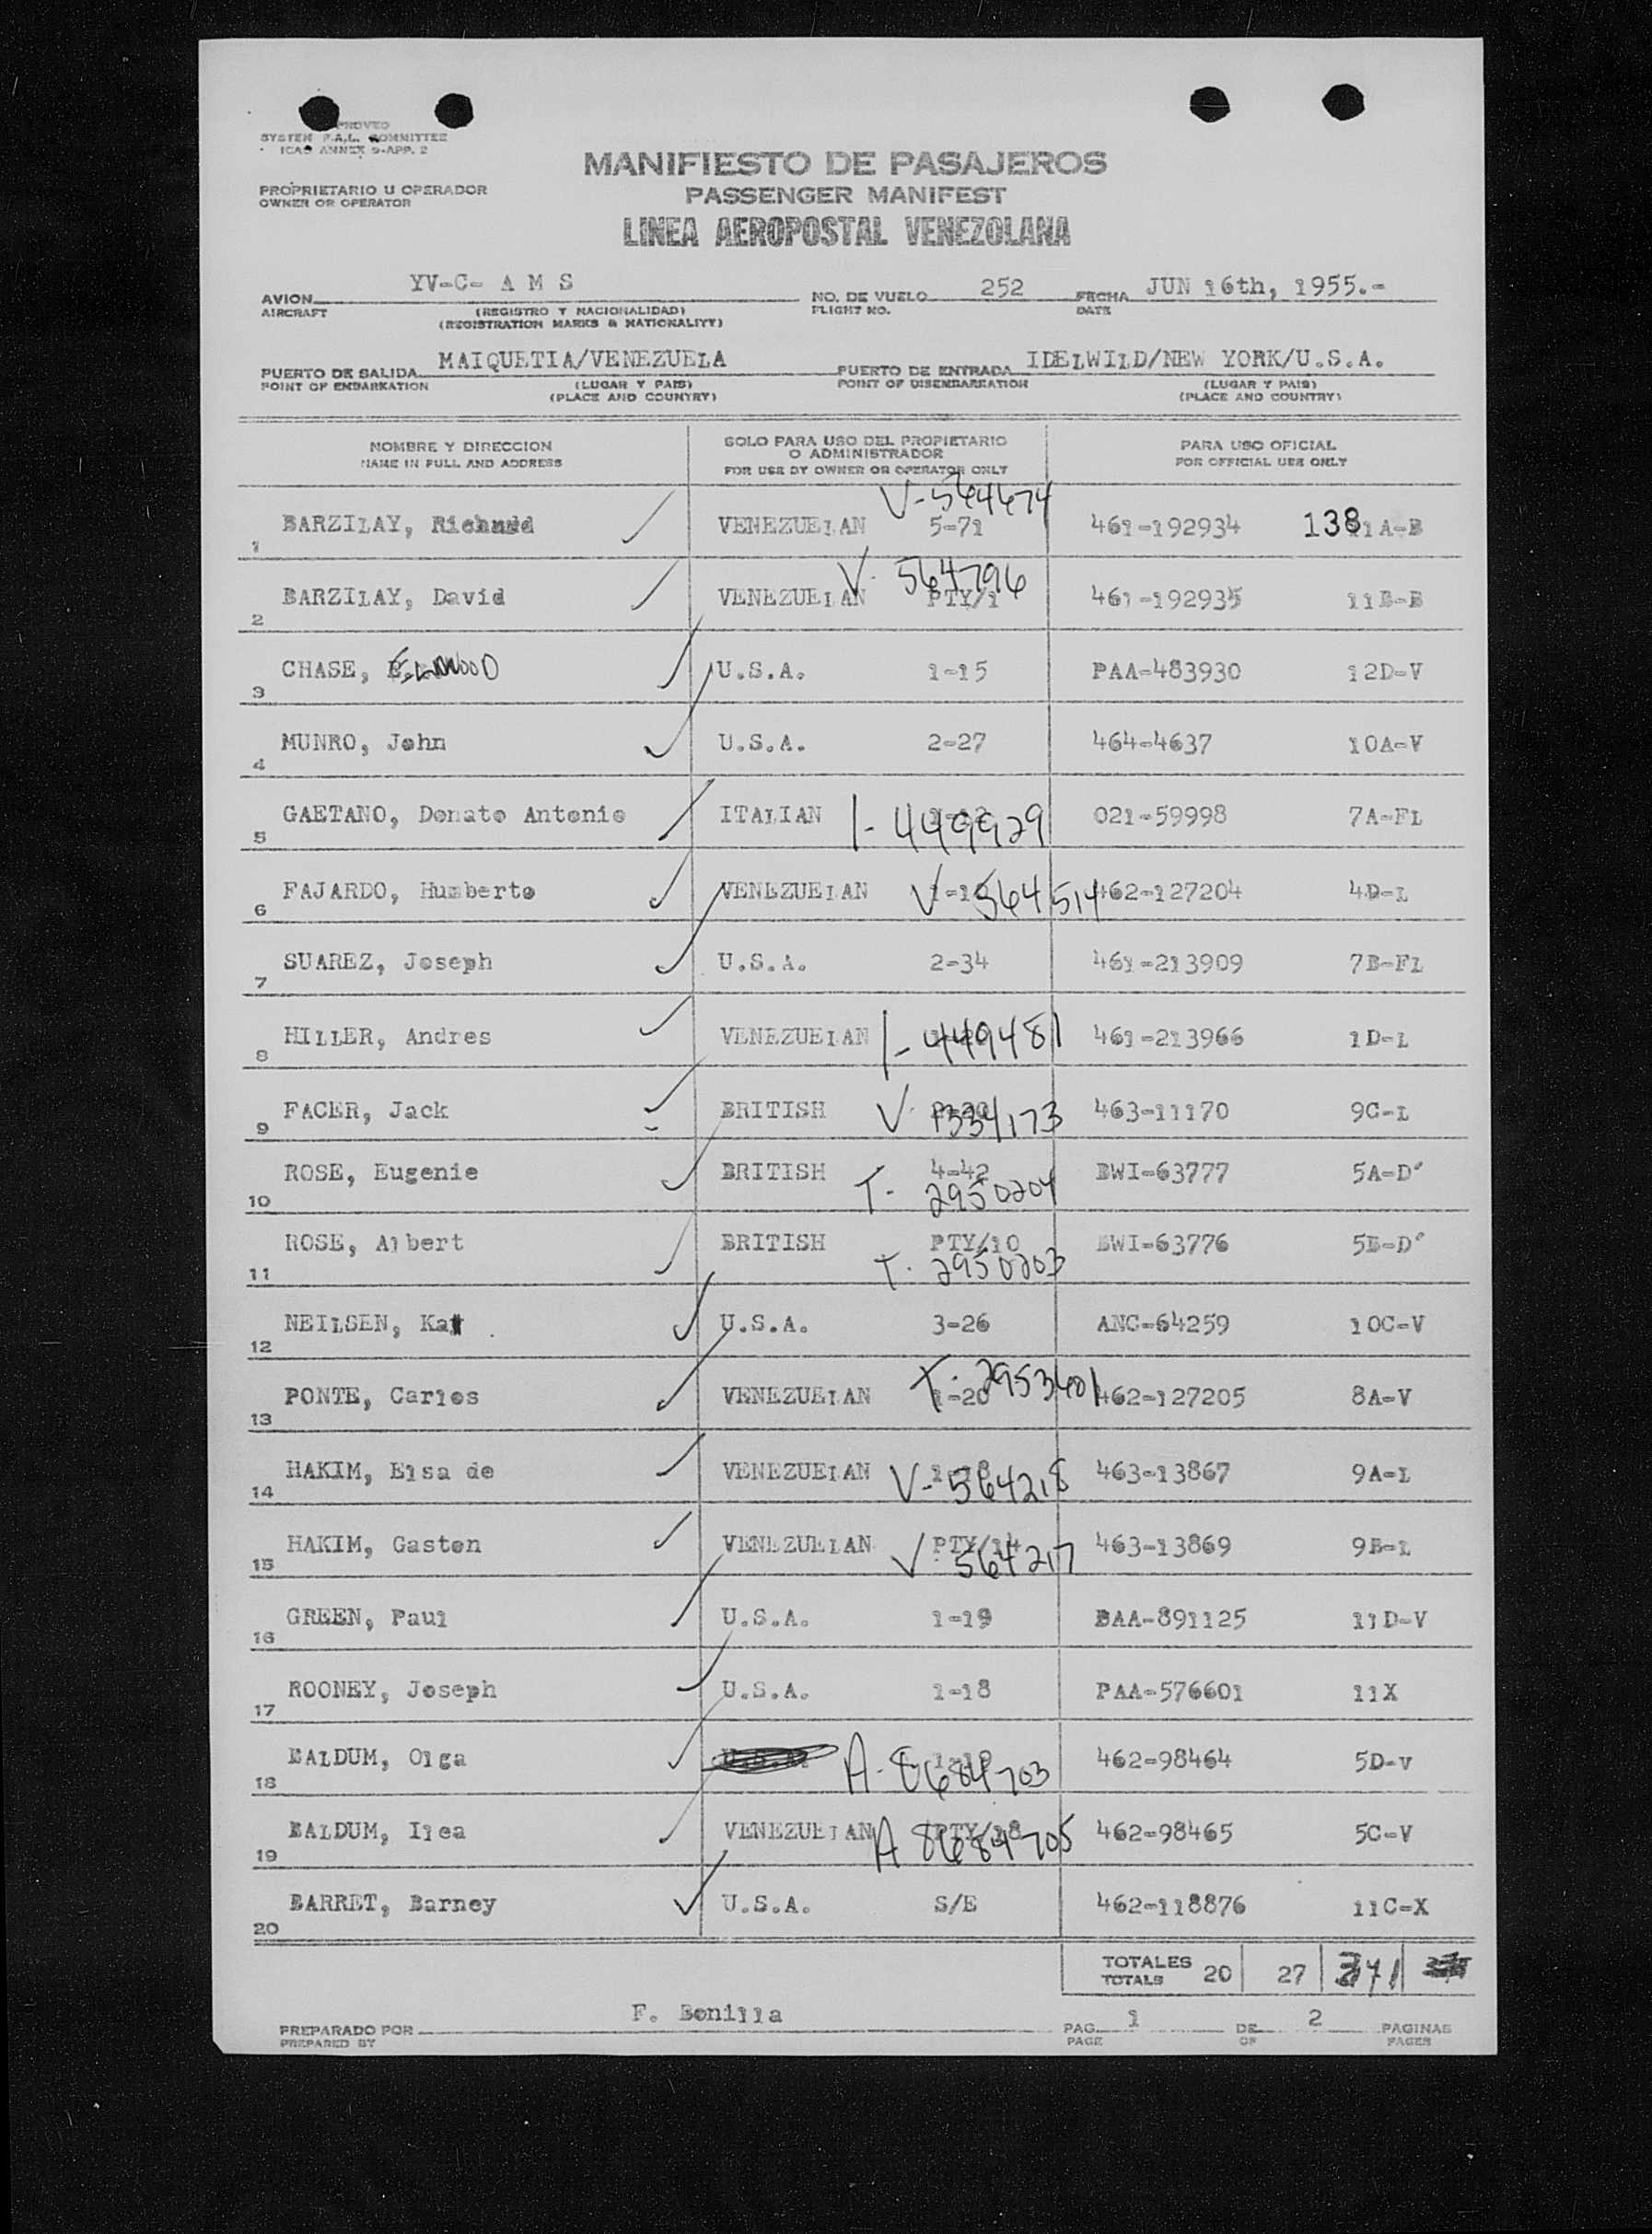 APPROVED
SYSTEM F.A.L. COMMITTEE
ICAO ANNEX 9-APP. 2
MANIFIESTO DE PASAJEROS
PASSENGER MANIFEST
PROPRIETARIO U OPERADOR
OWNER OR OPERATOR
LINEA AEROPOSTAL VENEZOLANA
AVION YV-C- A M S NO. DE VUELO 252 FECHA JUN 16th, 1955.-
AIRCRAFT (REGISTRO Y NACIONALIDAD) FLIGHT NO. DATE
(REGISTRATION MARKS & NATIONALITY)
PUERTO DE SALIDA MAIQUETIA/VENEZUELA PUERTO DE ENTRADA IDELWILD/NEW YORK/U.S.A.
POINT OF EMBARKATION (LUGAR Y PAIS) POINT OF DISEMBARKATION (LUGAR Y PAIS)
(PLACE AND COUNTRY) (PLACE AND COUNTRY)
NOMBRE Y DIRECCION
NAME IN FULL AND ADDRESS
SOLO PARA USO DEL PROPIETARIO
O ADMINISTRADOR
FOR USE BY OWNER OR OPERATOR ONLY
PARA USO OFICIAL
FOR OFFICIAL USE ONLY
V-564674
1 BARZILAY, Richard VENEZUELAN 5-71 461-192934 138 11A-B
V- 564796
2 BARZILAY, David VENEZUELAN PTY/1 461-192935 11B-B
3 CHASE, ELWOOD U.S.A. 1-15 PAA-483930 12D-V
4 MUNRO, John U.S.A. 2-27 464-4637 10A-V
5 GAETANO, Donato Antonio ITALIAN I-449929 021-59998 7A-FL
6 FAJARDO, Humberto VENEZUELAN V 564514 462-127204 4D-L
7 SUAREZ, Joseph U.S.A. 2-34 461-213909 7B-FL
8 HILLER, Andres VENEZUELAN I-449481 461-213966 1D-L
9 FACER, Jack BRITISH V- 334173 463-11170 9C-L
10 ROSE, Eugenie BRITISH 4-42 BWI-63777 5A-D'
T- 2950204
11 ROSE, Albert BRITISH PTY/10 BWI-63776 5B-D'
T- 2950203
12 NEILSEN, Kay U.S.A. 3-26 ANC-64259 10C-V
T-2953401
13 PONTE, Carlos VENEZUELAN 1-20 462-127205 8A-V
14 HAKIM, Elsa de VENEZUELAN V-564218 463-13867 9A-L
15 HAKIM, Gaston VENEZUELAN PTY/14 463-13869 9B-L
V 564217
16 GREEN, Paul U.S.A. 1-19 BAA-891125 11D-V
17 ROONEY, Joseph U.S.A. 1-18 PAA-576601 11X
18 BALDUM, Olga U.S.A. A-8684703 462-98464 5D-V
19 BALDUM, Ilea VENEZUELAN PTY/18 A 8684705 462-98465 5C-V
20 BARRET, Barney U.S.A. S/E 462-118876 11C-X
TOTALES
TOTALS 20 27 371
PREPARADO POR F. Bonilla PAG. 1 DE 2 PAGINAS
PREPARED BY PAGE OF PAGES